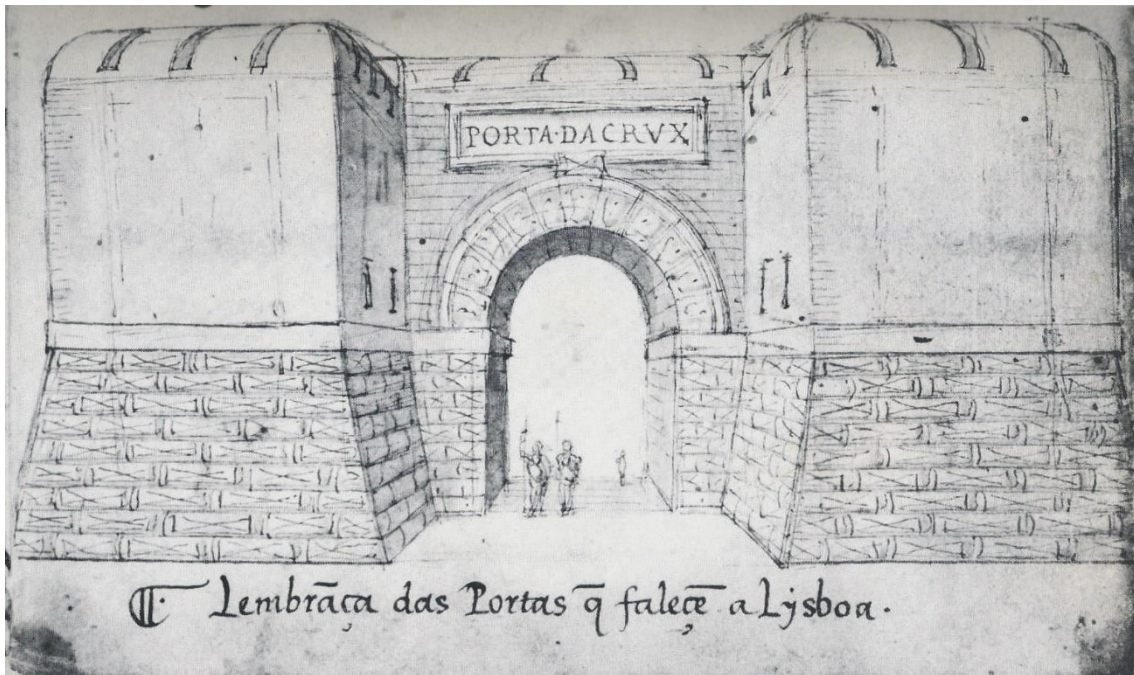 PORTA·DACRVX
₵· Lembrāça das Portas q̄ faleçē a Lysboa.